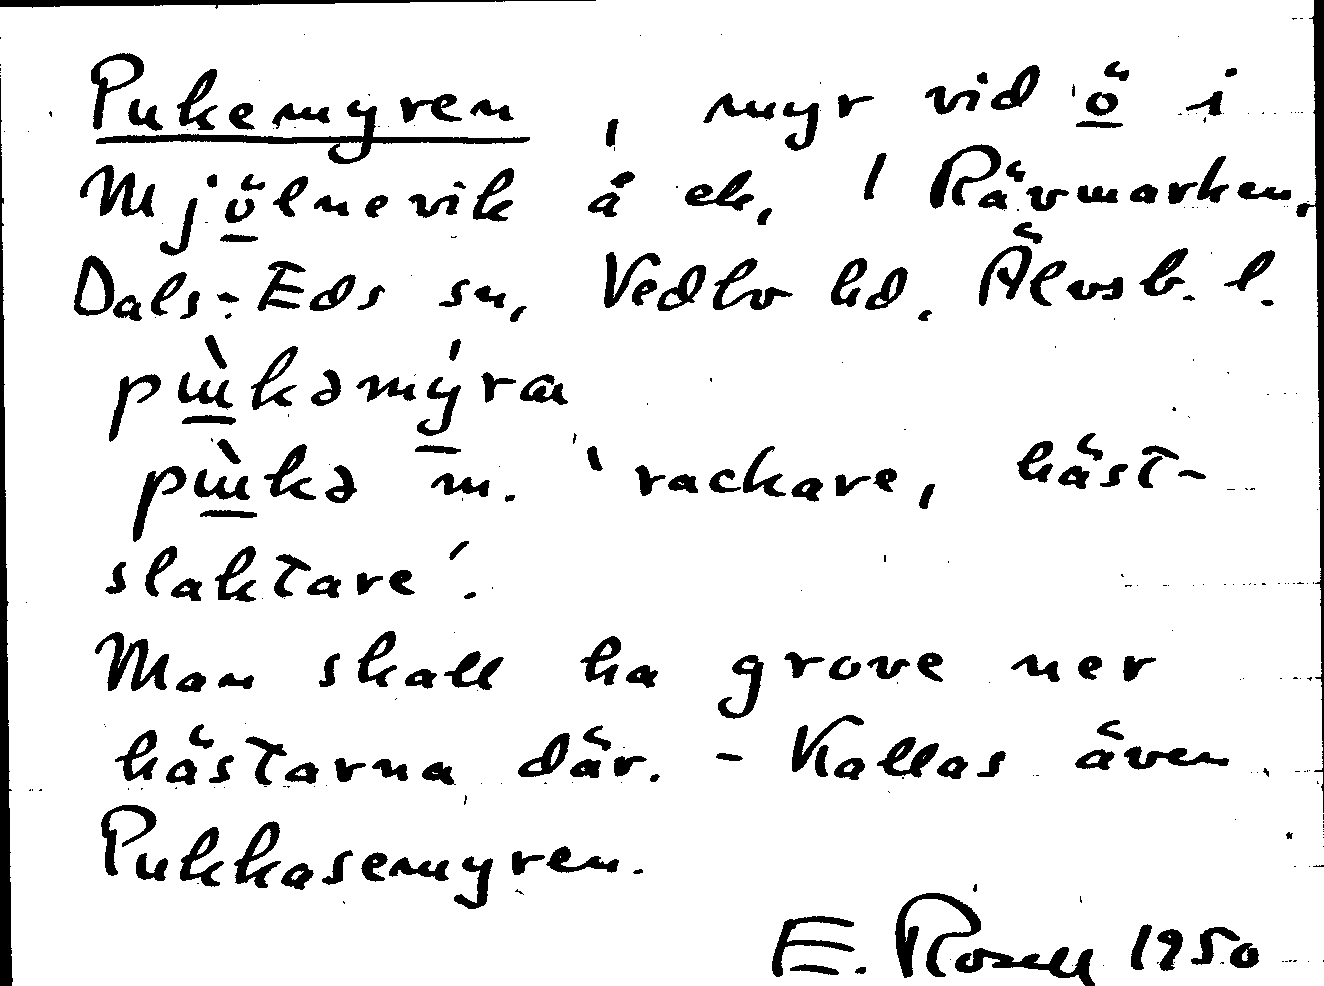 Pukemyren, myr vid ö i
Mjölnevik å ek, 1 Rävmarken,
Dals-Eds sn, Vedbo hd. Älvsb. l.
pɯ̀kəmýra
pɯ̀kə m. 'rackare, häst-
slaktare'.
Man skall ha grove ner
hästarna där. - Kallas även
Pukkasemyren.
E. Rosell 1950